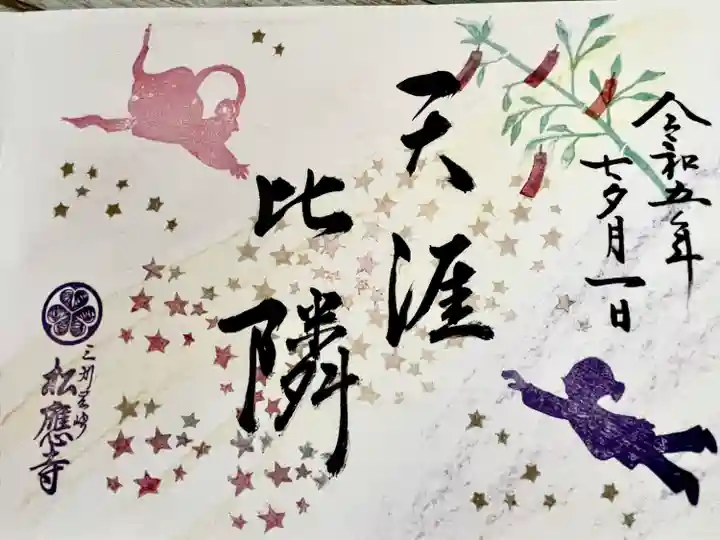 令和五年
七夕月一日
天涯
比隣
三州岡崎
松應寺